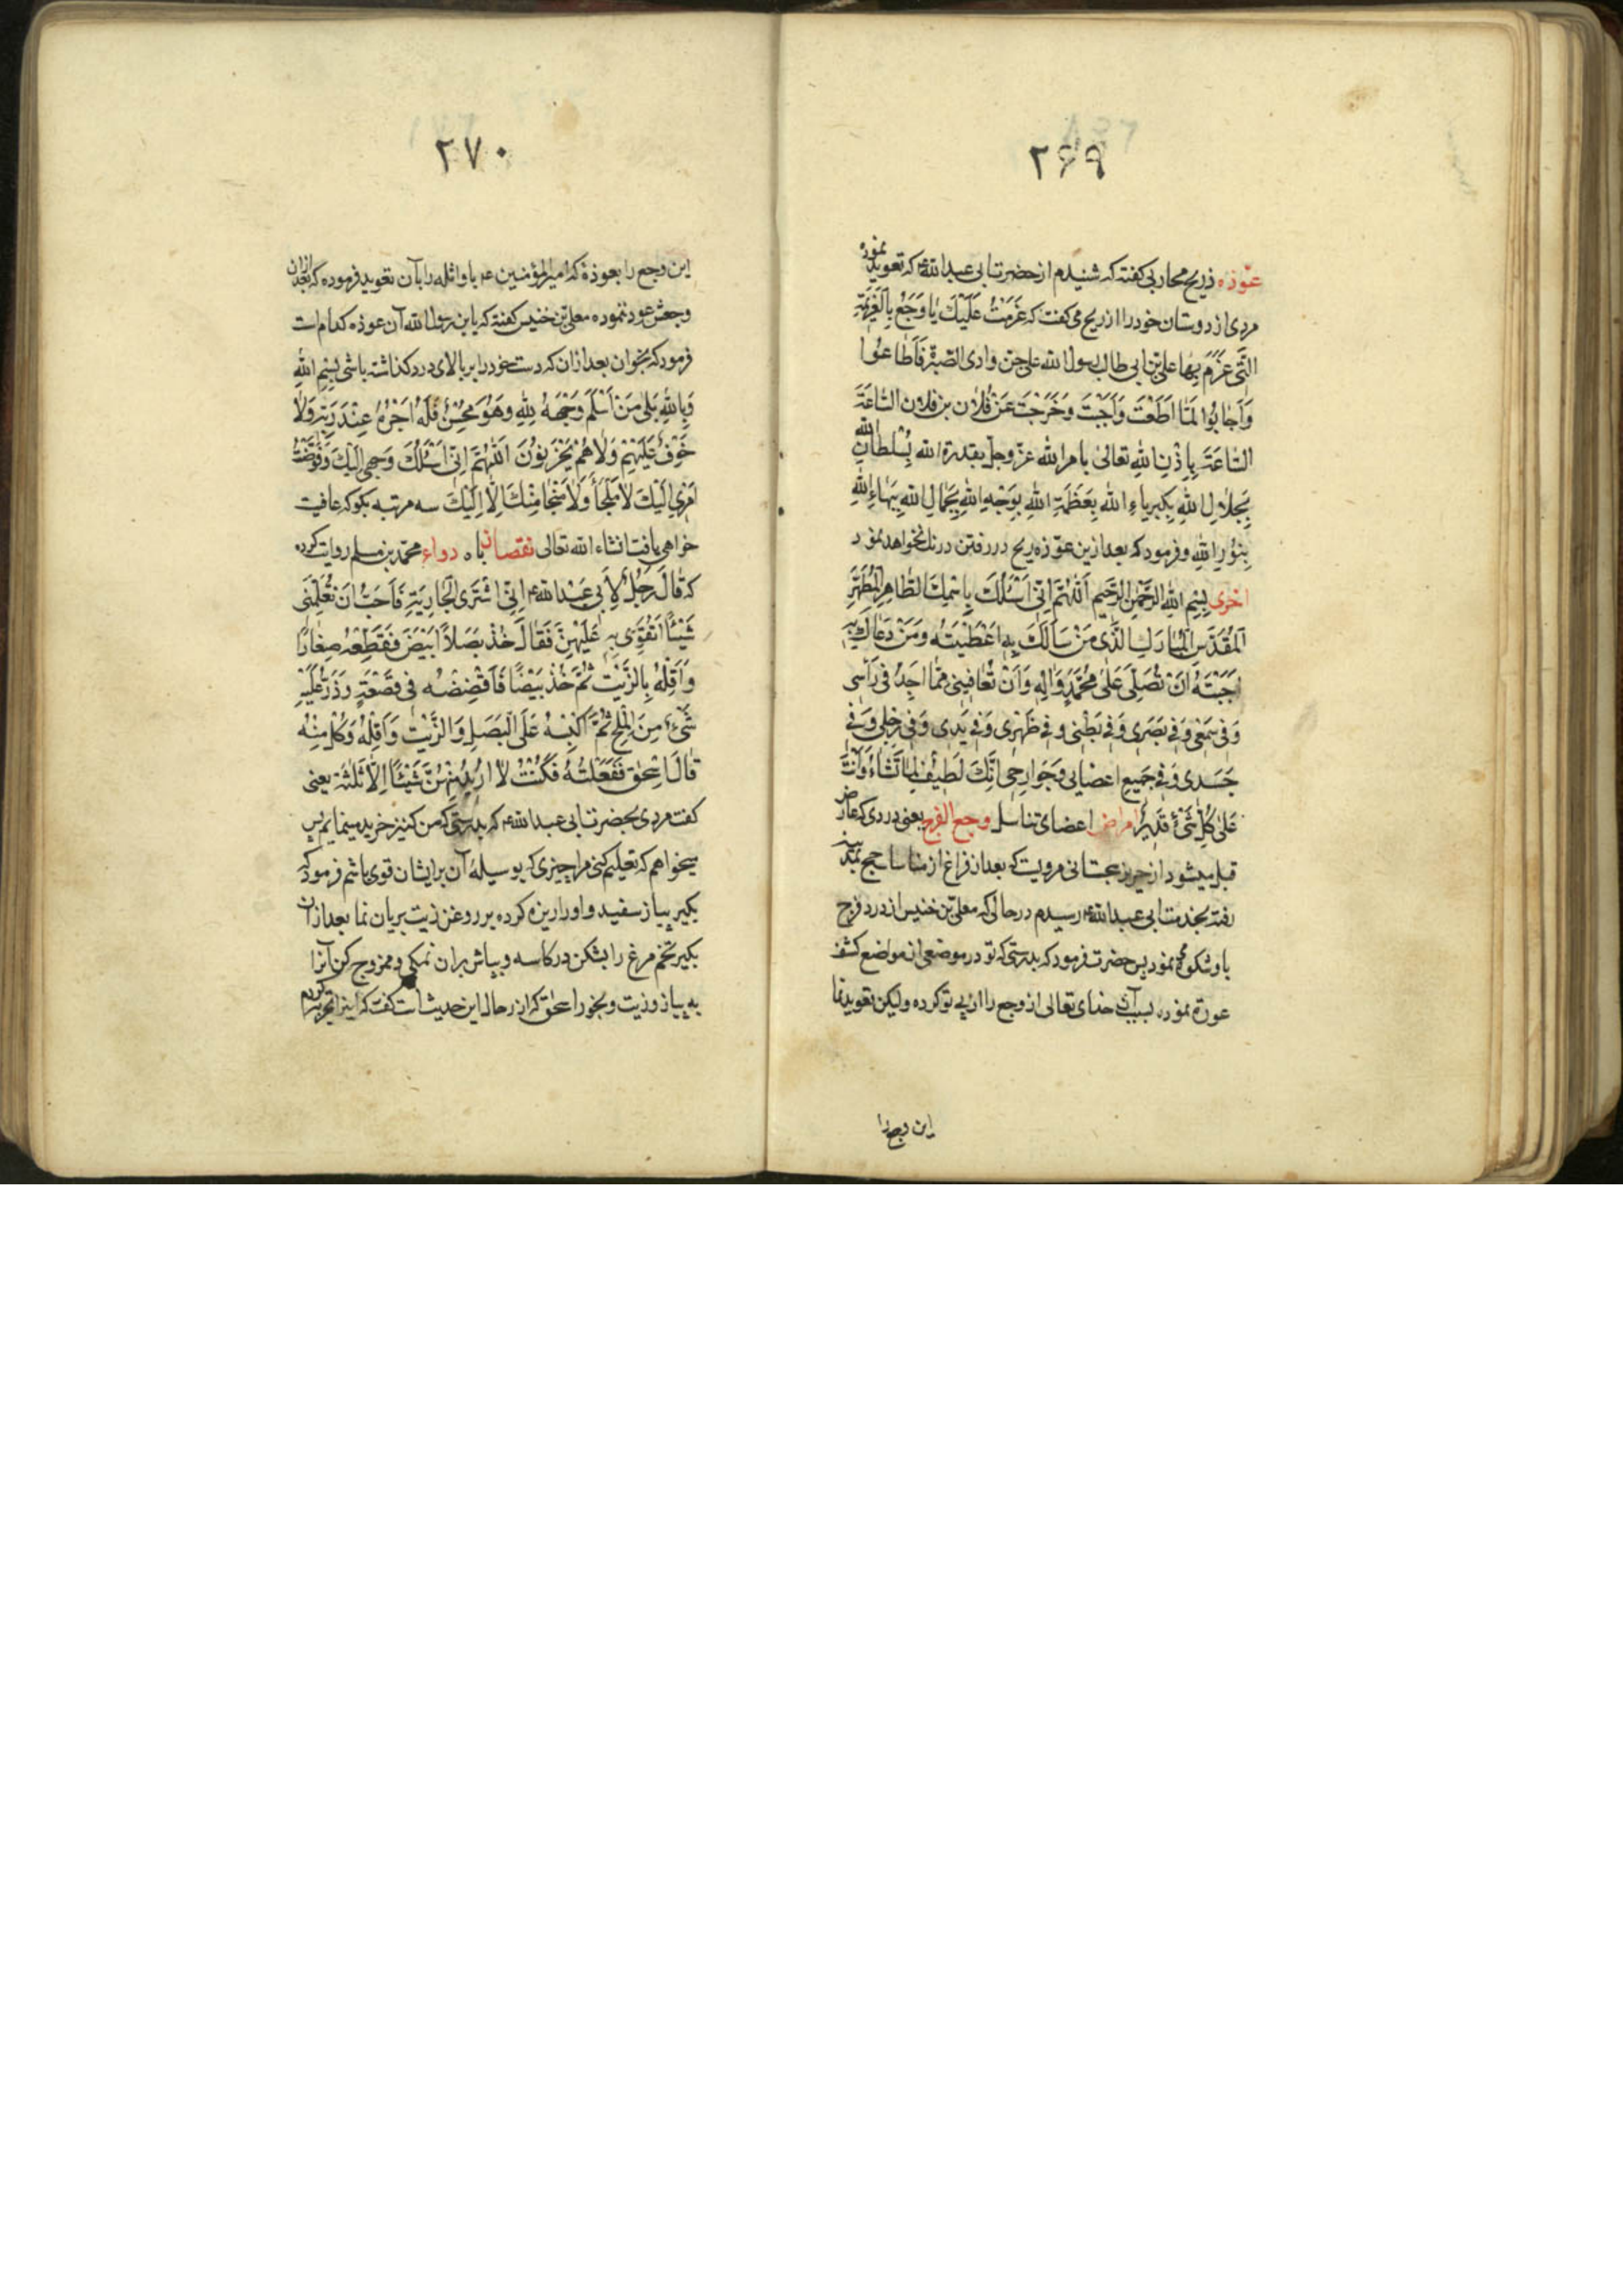 ۲۶۹
عوذه ذریح محاربی کفته که شنیدم از حضرت ابی عبدالله ع که تعویذ نموده
مردی از دوستان خود را از ریح می کفت که عَزَمْتُ عَلَیْكَ یا وَجَعُ بِالْعَزیمَةِ
الَّتی عَزَمَ بِها علی بن ابی طالب رسول الله علی جن وادی الصبرة فَاَطاعُوا
وَاَجابُوا لَمّا اَطَعْتَ وَاَجَبْتَ وَخَرَجْتَ عَنْ فُلان بن فلان السّاعَةَ
السّاعَةَ بِاِذْنِ اللهِ تعالی بامر الله عزّ وجلّ بقدرة الله بِسُلْطانِ الله
بِجَلالِ اللهِ بِکِبریاءِ اللهِ بِعَظَمَةِ اللهِ بِوَجْهِ اللهِ بِجَمالِ اللهِ بِبَهاءِ اللهِ
بِنُورِ اللهِ و فرمود که بعد ازین عوذه ریح در رفتن درنك نخواهد نمود
اخری بِسْمِ اللهِ الرَّحْمنِ الرَّحیمِ اَللّهُمَّ اِنّی اَسْئَلُكَ بِاسْمِكَ الطّاهِرِ الْمُطَهَّرِ
اَلْمُقَدَّسِ الْمُبارَكِ الَّذی مَنْ سَاَلَكَ بِهِ اَعْطَیْتَهُ وَمَنْ دَعاكَ بِهِ
اَجَبْتَهُ اَنْ تُصَلِّیَ عَلی مُحَمَّدٍ وَالِهِ وَاَنْ تُعافِیَنی مِمّا اَجِدُ فی رَأسی
وَفی سَمْعی وَفی بَصَری وَفی بَطْنی وفی ظَهْری وَفی یَدی وَفی رِجْلی وَفی
جَسَدی وَفی جَمیعِ اعضایی وَجَوارِحی اِنَّكَ لَطیفٌ لِما تَشاءُ وَاَنْتَ
عَلی کُلِّ شَیْءٍ قَدیرٌ امراض اعضای تناسل وجع الفرج یعنی دردی که عارض
قبل میشود از حریز سجستانی مرویست که بعد از فراغ از مناسك حج بمدینه
رفته بخدمت ابی عبدالله ع رسیدم در حالی که معلی بن خنیس از درد فرج
باو شکوه می نمود پس حضرت فرمود که بدرستی که تو در موضعی از مواضع کشف
عورة نموده بسبب آن خدای تعالی از وجع را از پی تو کرده ولیکن تعویذ نما
این وجع را
۲۷۰
این وجع را بعوذهٔ که امیر المؤمنین ع باو اثله را بآن تعویذ فرموده که بعد از آن
وجعش عود ننموده معلی بن خنیس کفته که یا بن رسول الله آن عوذه کدام است
فرمود که بخوان بعد از ان که دست خود را بر بالای درد کذاشته باشی بِسْمِ اللهِ
وَبِاللهِ بَلی مَنْ اَسْلَمَ وَجْهَهُ لِلّهِ وَهُوَ مُحْسِنٌ فَلَهُ اَجْرُهُ عِنْدَ رَبِّهِ وَلا
خَوْفٌ عَلَیْهِمْ وَلا هُمْ یَحْزَنُونَ اَللّهُمَّ اِنّی اَسْئَلُكَ وَجهی اِلَیْكَ وَفَوَّضْتُ
اَمْری اِلَیْكَ لا مَلْجَأَ وَلا مَنْجا مِنْكَ اِلّا اِلَیْكَ سه مرتبه بکو که عافیت
خواهی یافت انشاء الله تعالی نقصان باه دواء محمد بن مسلم روایت کرده
که قالَ رَجُلٌ لِاَبی عَبْدِ الله ع اِنّی اَشْتَری الْجارِیَةِ فَاُحِبُّ اَنْ تُعَلِّمَنی
شَیْئًا اَتَقَوّی بِهِ عَلَیْهِنَّ فَقالَ خُذْ بَصَلًا اَبْیَضَ فَقَطِّعْهُ صِغارًا
وَاَقْلِهُ بِالزَّیْتِ ثُمَّ خُذْ بَیْضًا فَاَقْضِضْهُ فی قَصْعَةٍ وَذَرِّ عَلَیْهِ
شَیْءً مِنَ الْمِلْحِ ثُمَّ اکبّهُ عَلَی الْبَصَلِ وَالزَّیْتِ وَاَقْلِهُ وَکُلْ مِنْهُ
قالَ اِسْحق فَفَعَلْتُهُ فَکُنْتُ لا اُریدُ مِنْهُنَّ شَیْئًا اِلّا ثَلثَة یعنی
کفت مردی بحضرت ابی عبدالله ع که بدرستی که من کنیز خریدمینمایم پس
میخواهم که تعلیم کنی مرا چیزی که بوسیلهٔ آن بر ایشان قوی باشم فرمود که
بکیر پیاز سفید و او را ریزه کرده بر روغن زیت بریان نما بعد از آن
بکیر تخم مرغ را بشکن در کاسه و بپاش بران نمکی و ممزوج کن آنرا
به پیاز و زیت و بخور اسحق که از رجال این حدیث است کفت که اینرا تجربه کردم